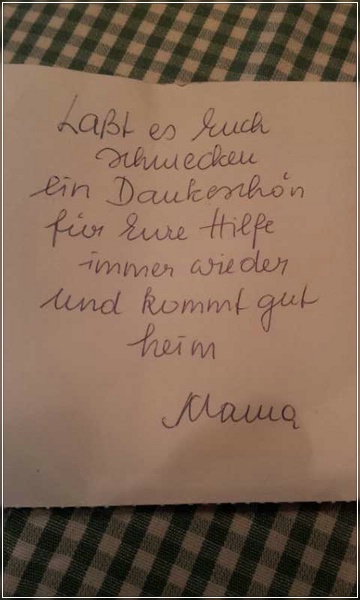 Laßt es Euch
schmecken
ein Dankeschön
für Eure Hilfe
immer wieder
und kommt gut
heim
Mama